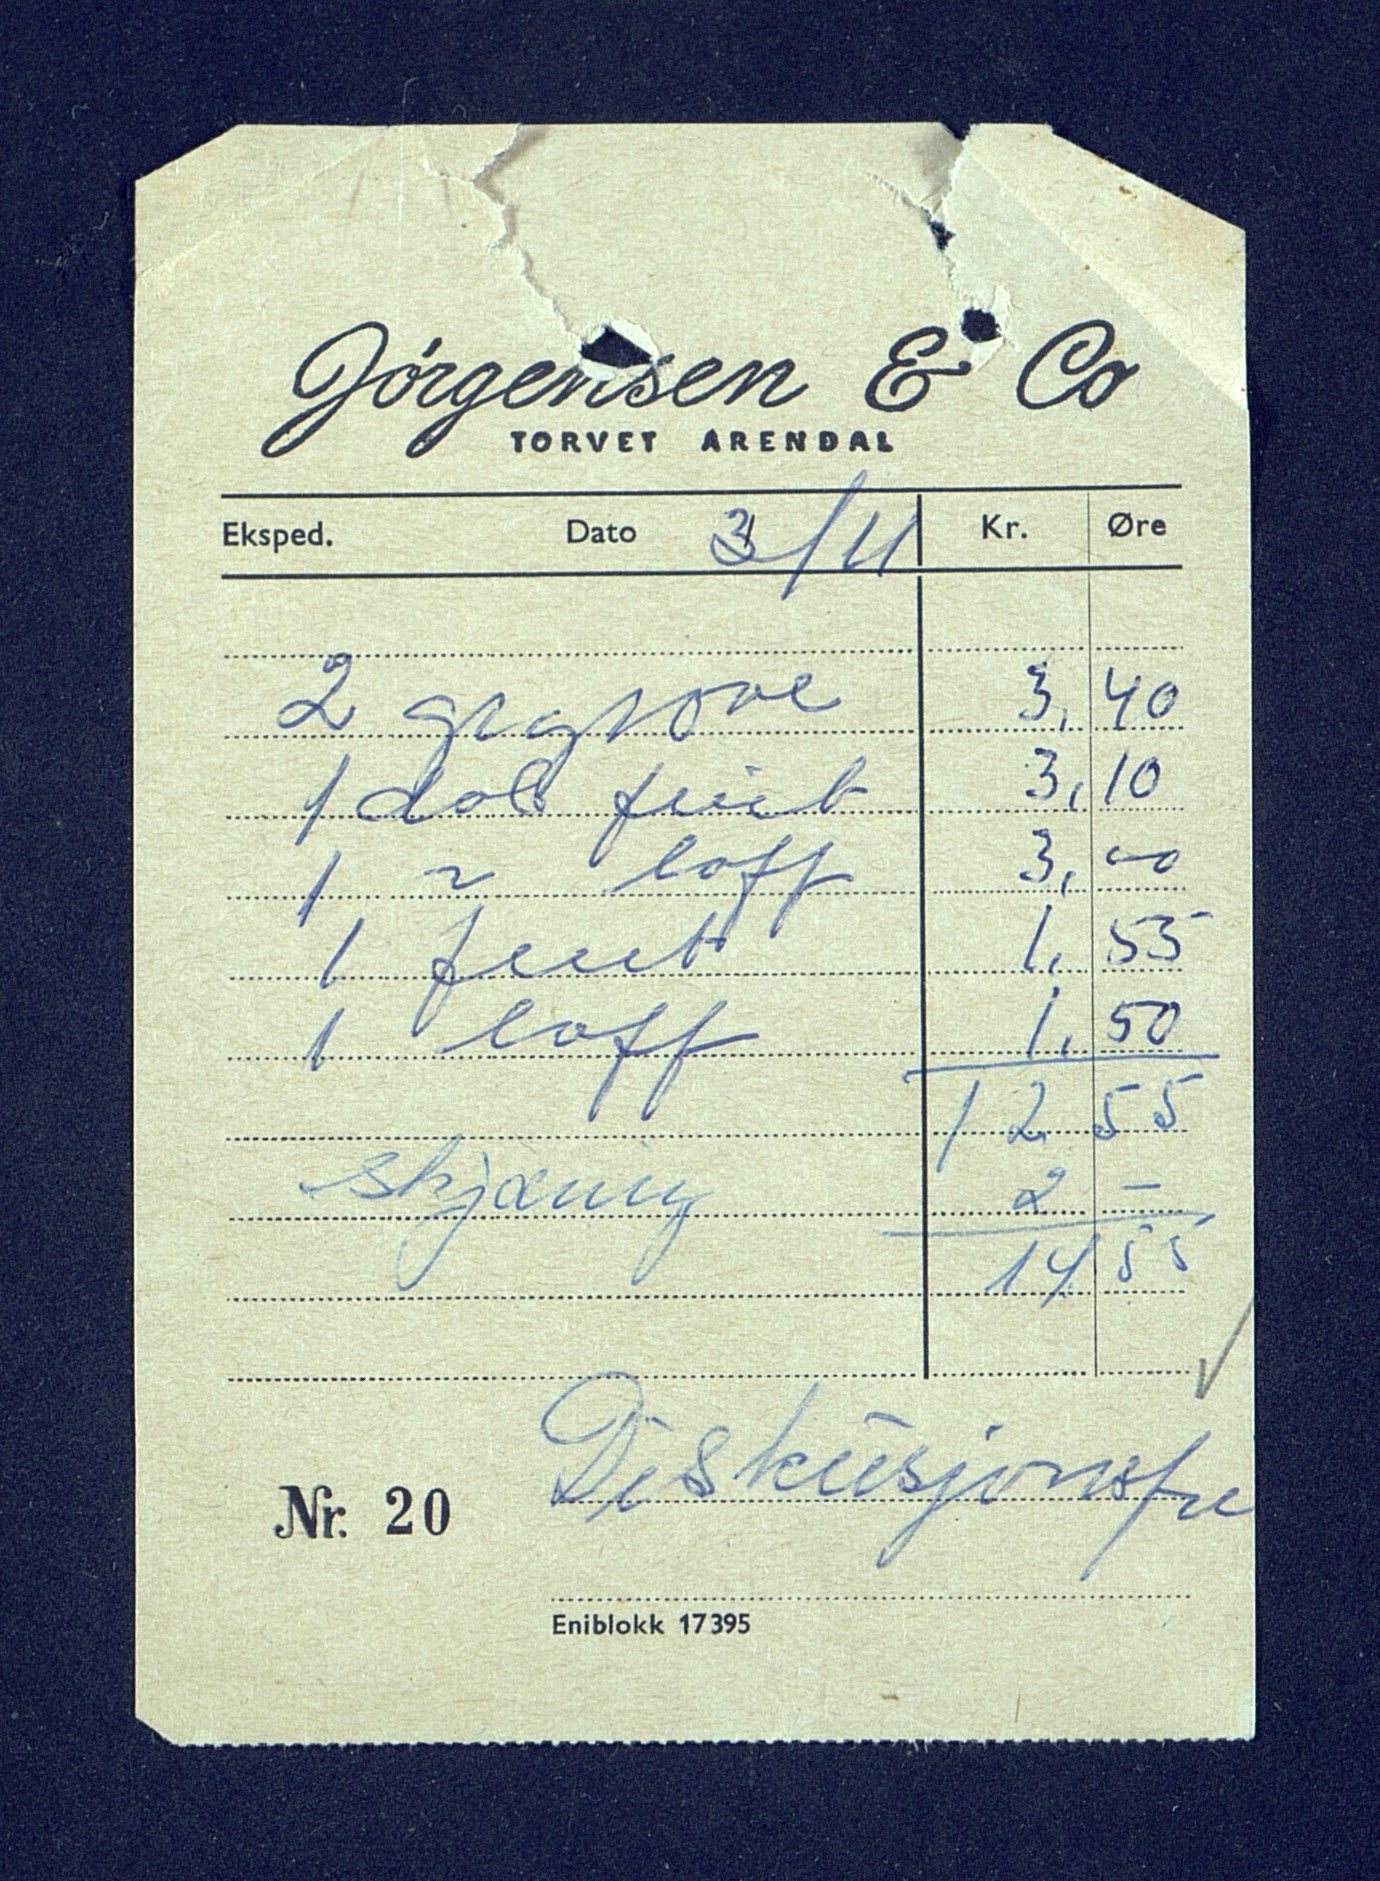 Jørgensen & Co
TORVET ARENDAL
Eksped. Dato 3/11 Kr. Øre
2 grgrove 3,40
1 dob fint 3,10
1 " loff 3,00
1 fint 1,55
1 loff 1,50
12 55
skjæring 2 –
14 55
Nr. 20 Diskusjonsfre
Eniblokk 17395